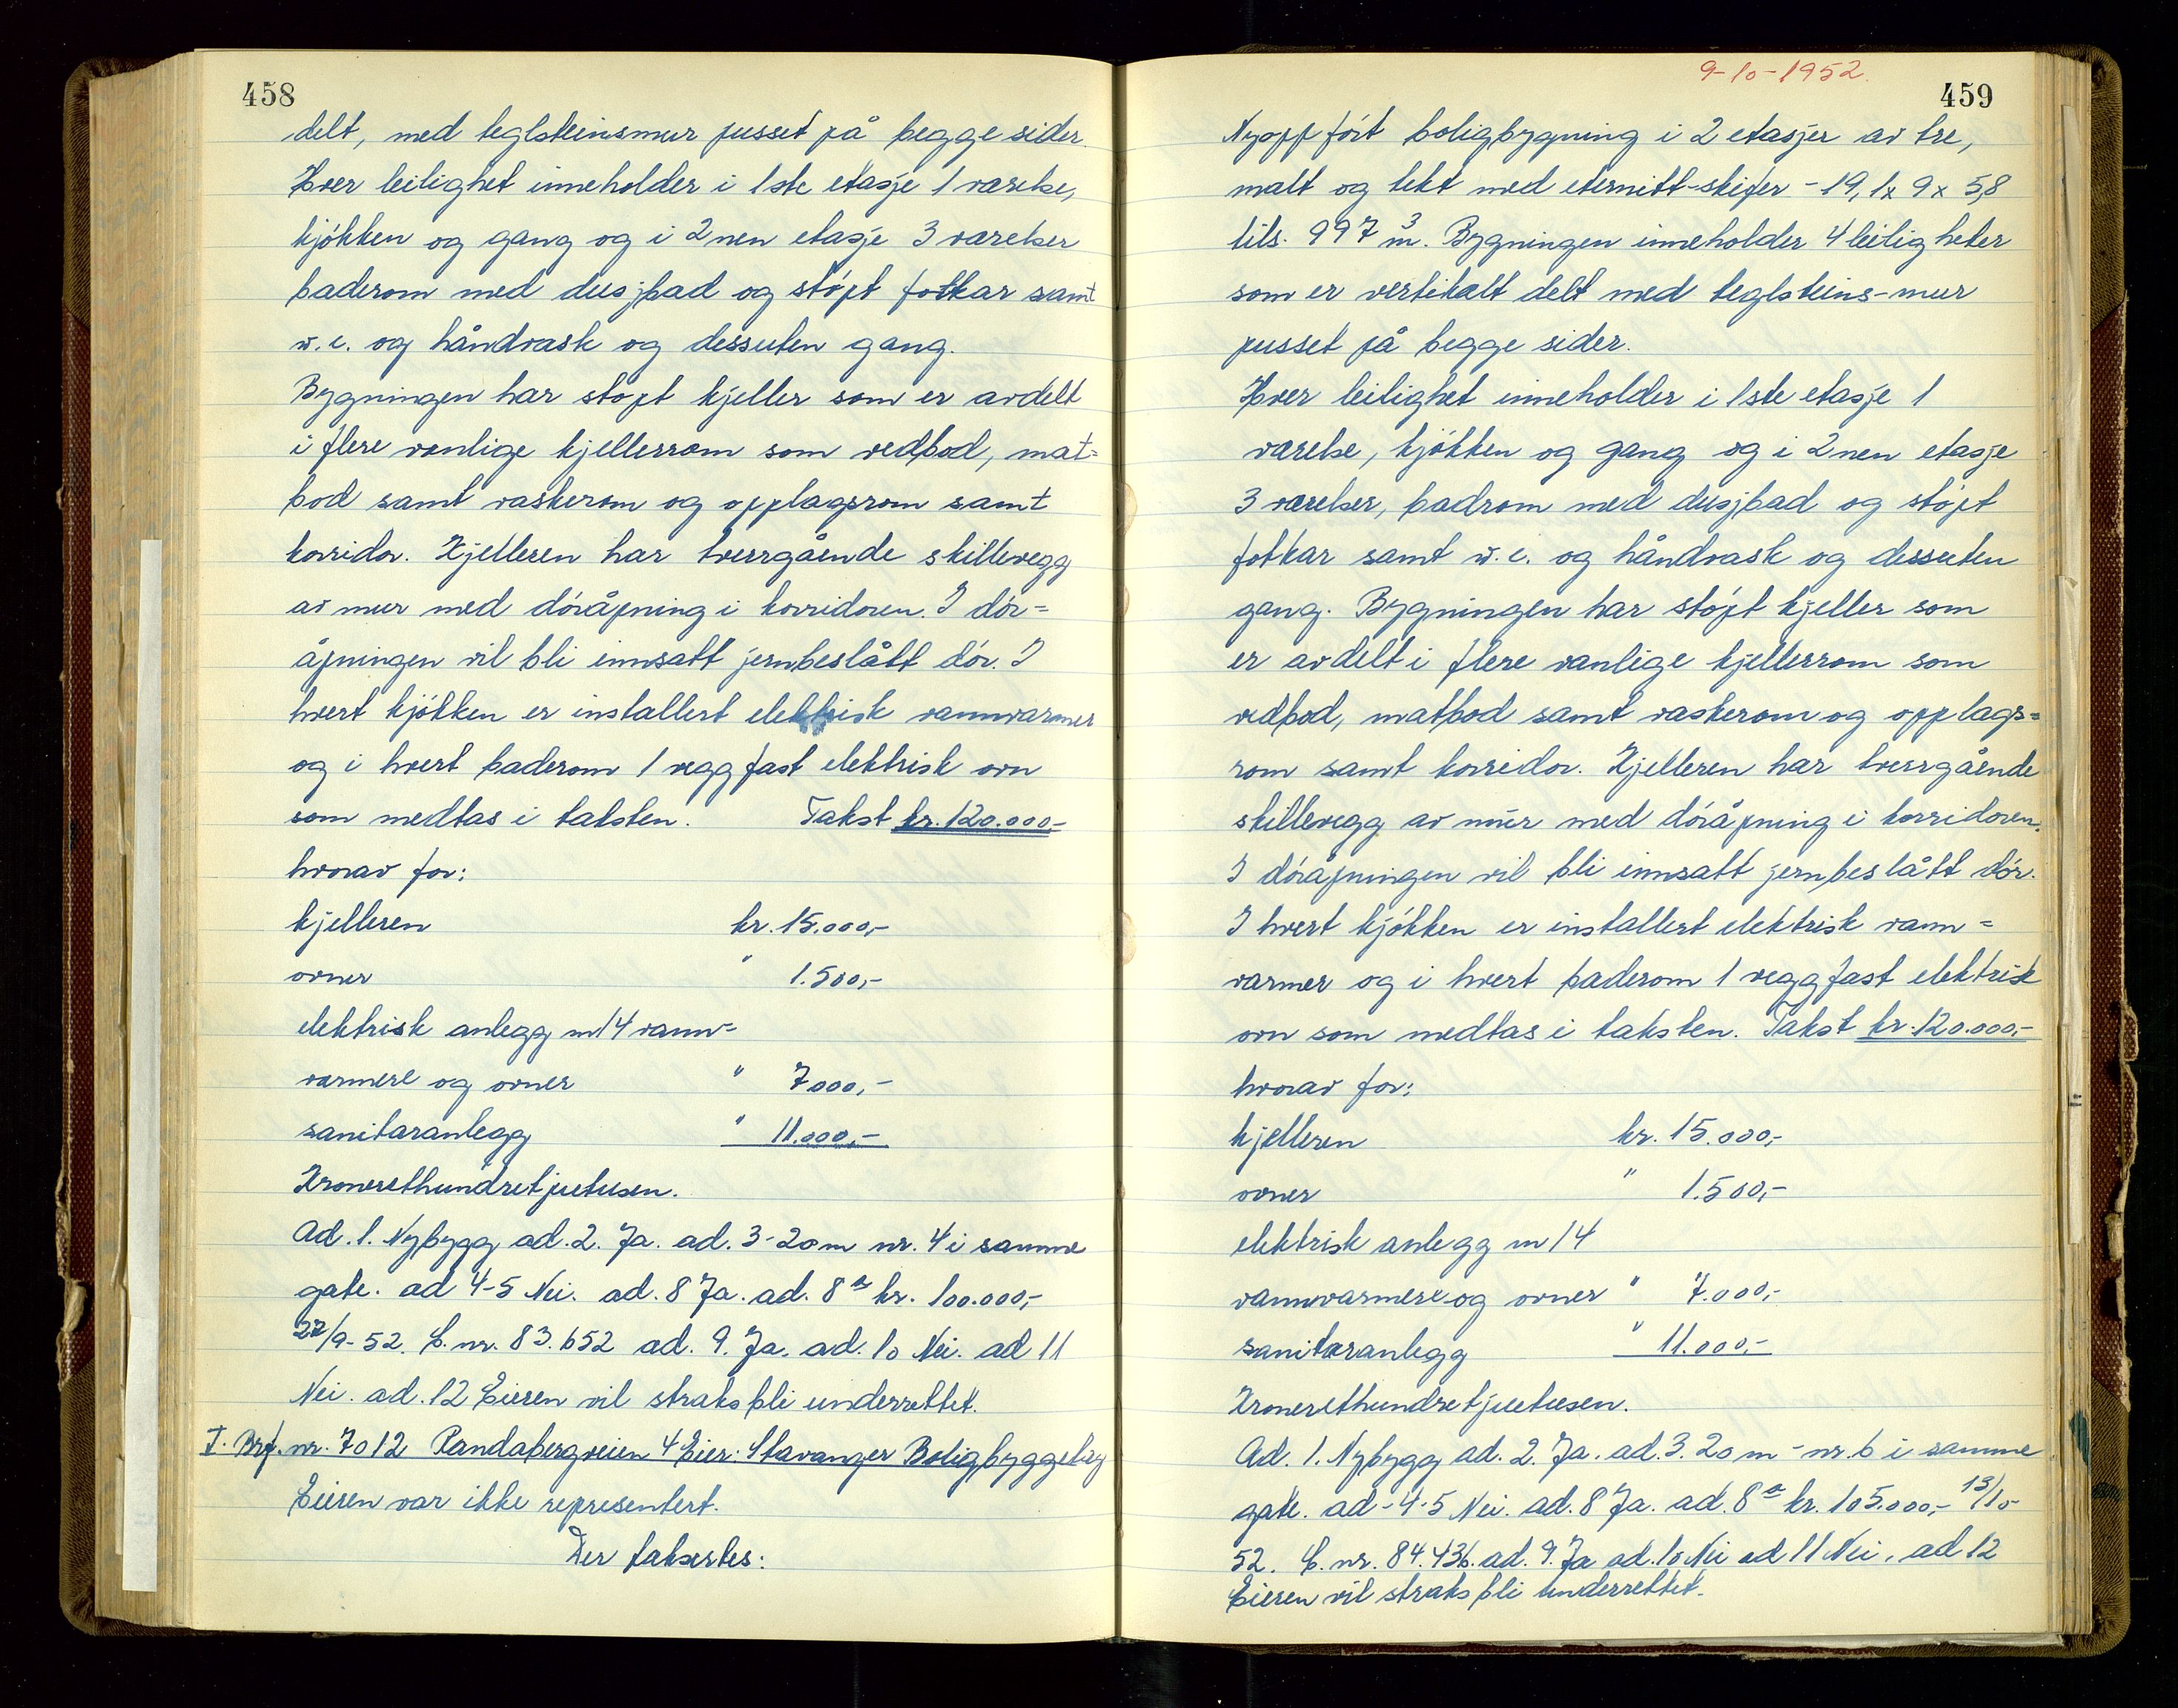 458
delt, med teglsteinsmur pusset på begge sider.
Hver leilighet inneholder i 1ste etasje 1 værelse,
kjøkken og gang og i 2nen etasje 3 værelser
baderom med dusjbad og støpt fotkar samt
w.c. og håndvask og dessuten gang.
Bygningen har støpt kjeller som er avdelt
i flere vanlige kjellerrom som vedbod, mat=
bod samt vaskerom og opplagsrom samt
korridor. Kjelleren har tverrgående skillevegg
av mur med døråpning i korridoren. I dør=
åpningen vil bli innsatt jernbeslått dør. I
hvert kjøkken er installert elektrisk vannvarmer
og i hvert baderom 1 veggfast elektrisk ovn
som medtas i taksten. Takst kr. 120.000,-
hvorav for:
kjelleren kr. 15.000,-
ovner " 1.500,-
elektrisk anlegg m/4 vann=
varmere og ovner " 7000,-
sanitæranlegg " 11.000,-
Kronerethundretjuetusen.
Ad. 1. Nybygg ad. 2. Ja. ad. 3-20m nr. 4 i samme
gate. ad 4-5 Nei. ad. 8 Ja. ad. 8a kr. 100.000,-
22/9-52. L. nr. 83.652 ad. 9. Ja. ad. 10 Nei. ad 11
Nei. ad. 12 Eieren vil straks bli underrettet.
I. Brf. nr. 7012 Randabergveien 4 Eier: Stavanger Boligbyggelag
Eieren var ikke representert.
Der taksertes:
9-10-1952.
459
Nyoppført boligbygning i 2 etasjer av tre,
malt og tekt med eternitt-skifer - 19,1x 9x 5,8
tils. 997 m3. Bygningen inneholder 4 leiligheter
som er vertikalt delt med teglsteins-mur
pusset på begge sider.
Hver leilighet inneholder i 1ste etasje 1
værelse, kjøkken og gang og i 2nen etasje
3 værelser, badrom med dusjbad og støpt
fotkar samt w.c. og håndvask og dessuten
gang. Bygningen har støpt kjeller som
er avdelt i flere vanlige kjellerrom som
vedbod, matbod samt vaskerom og opplags=
rom samt korridor. Kjelleren har tverrgående
skillevegg av mur med døråpning i korridoren.
I døråpningen vil bli innsatt jernbeslått dør.
I hvert kjøkken er installert elektrisk vann=
varmer og i hvert baderom 1 veggfast elektrisk
ovn som medtas i taksten. Takst kr. 120.000,-
hvorav for:
kjelleren kr. 15.000,-
ovner " 1.500,-
elektrisk anlegg m/4
vannvarmere og ovner " 7.000,-
sanitæranlegg " 11.000,-
Kronerethundretjuetusen.
Ad. 1. Nybygg ad. 2. Ja. ad. 3. 20 m - nr. 6 i samme
gate. ad-4-5 Nei. ad. 8 Ja. ad. 8a kr. 105.000,- 13/10-
52. L. nr. 84.436. ad. 9. Ja ad. 10 Nei ad 11 Nei. ad 12
Eieren vil straks bli underrettet.